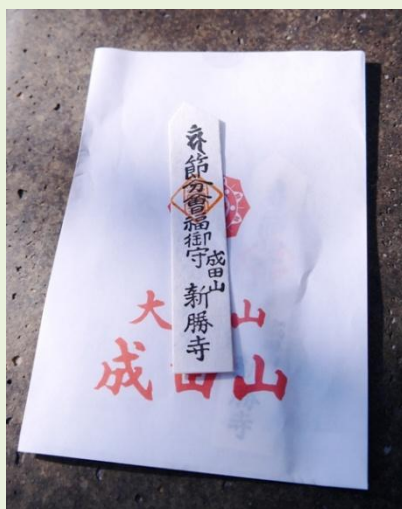 節分會福御守
成田山
新勝寺
大 山
成田山